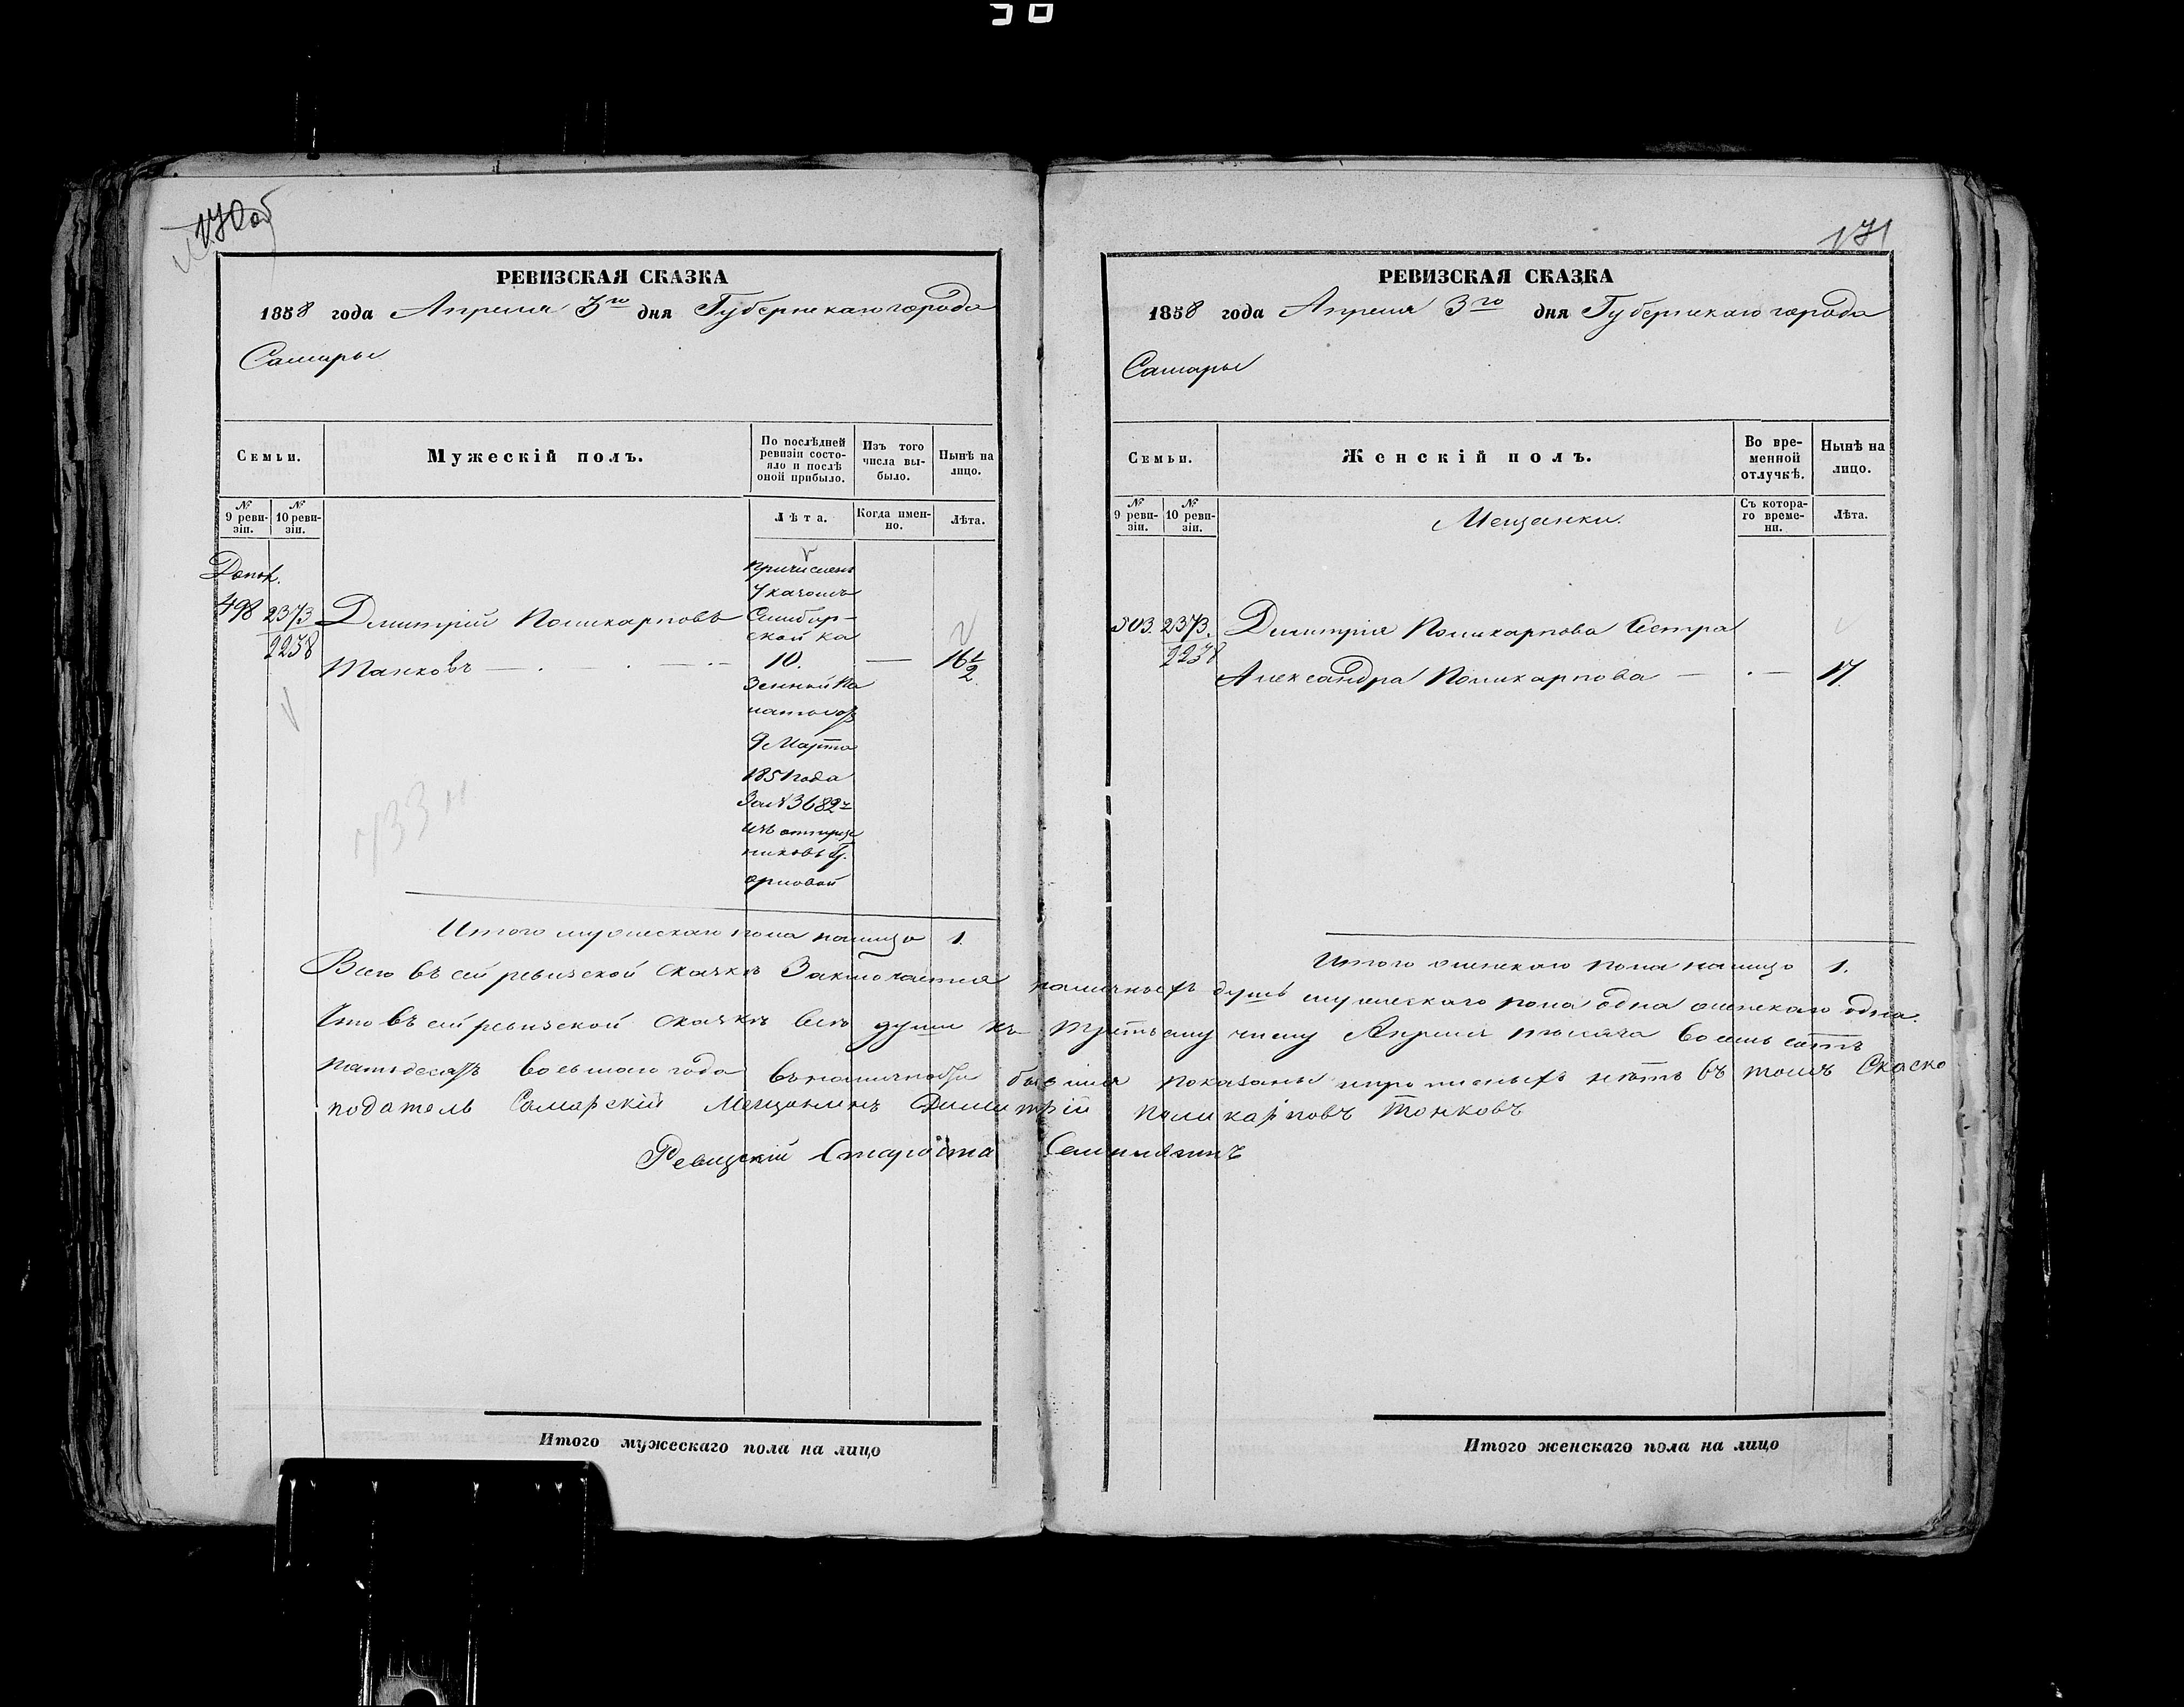 30
170 об
РЕВИЗСКАЯ СКАЗКА
1858 года Апреля 3го дня Губернскаго города
Самары
Семьи. Мужескій полъ. По послѣдней ревизіи состояло и послѣ оной прибыло. Изъ того числа выбыло. Нынѣ на лицо.
№ 9 ревизіи. № 10 ревизіи. Лѣта. Когда именно. Лѣта.
Допол.
причисленъ
Указомъ
498 2373 Дмитрий Поликарповъ Симбир-
2238 ской ка
Танковъ 10. — 16 1/2
зенной па
латы отъ
9 Марта
1851 года
за №3682
изъ отпуще
никовъ Г.
Орловой
Итого мужескаго пола налицо 1.
171
РЕВИЗСКАЯ СКАЗКА
1858 года Апреля 3го дня Губернскаго города
Самары
Семьи. Женскій полъ. Во временной отлучкѣ. Нынѣ на лицо.
№ 9 ревизіи. № 10 ревизіи. Мещанки. Съ котораго времени. Лѣта.
503. 2373. Дмитрия Поликарпова Сестра
2238
Александра Поликарпова — 17.
Итого женскаго пола налицо 1.
Всего въ сей ревизской сказкѣ Заключается наличныхъ душъ мужескаго пола одна женскаго одна.
Что въ сей ревизской сказкѣ все души къ третьему числу Апреля тысяча восемь сотъ
пятьдесятъ восьмаго года въ наличности бывшия показаны и прописныхъ нѣтъ въ томъ Сказко
податель Самарский Мещанинъ Димитрій Поликарповъ Тонковъ
Ревизский Староста
Итого мужескаго пола на лицо
Итого женскаго пола на лицо